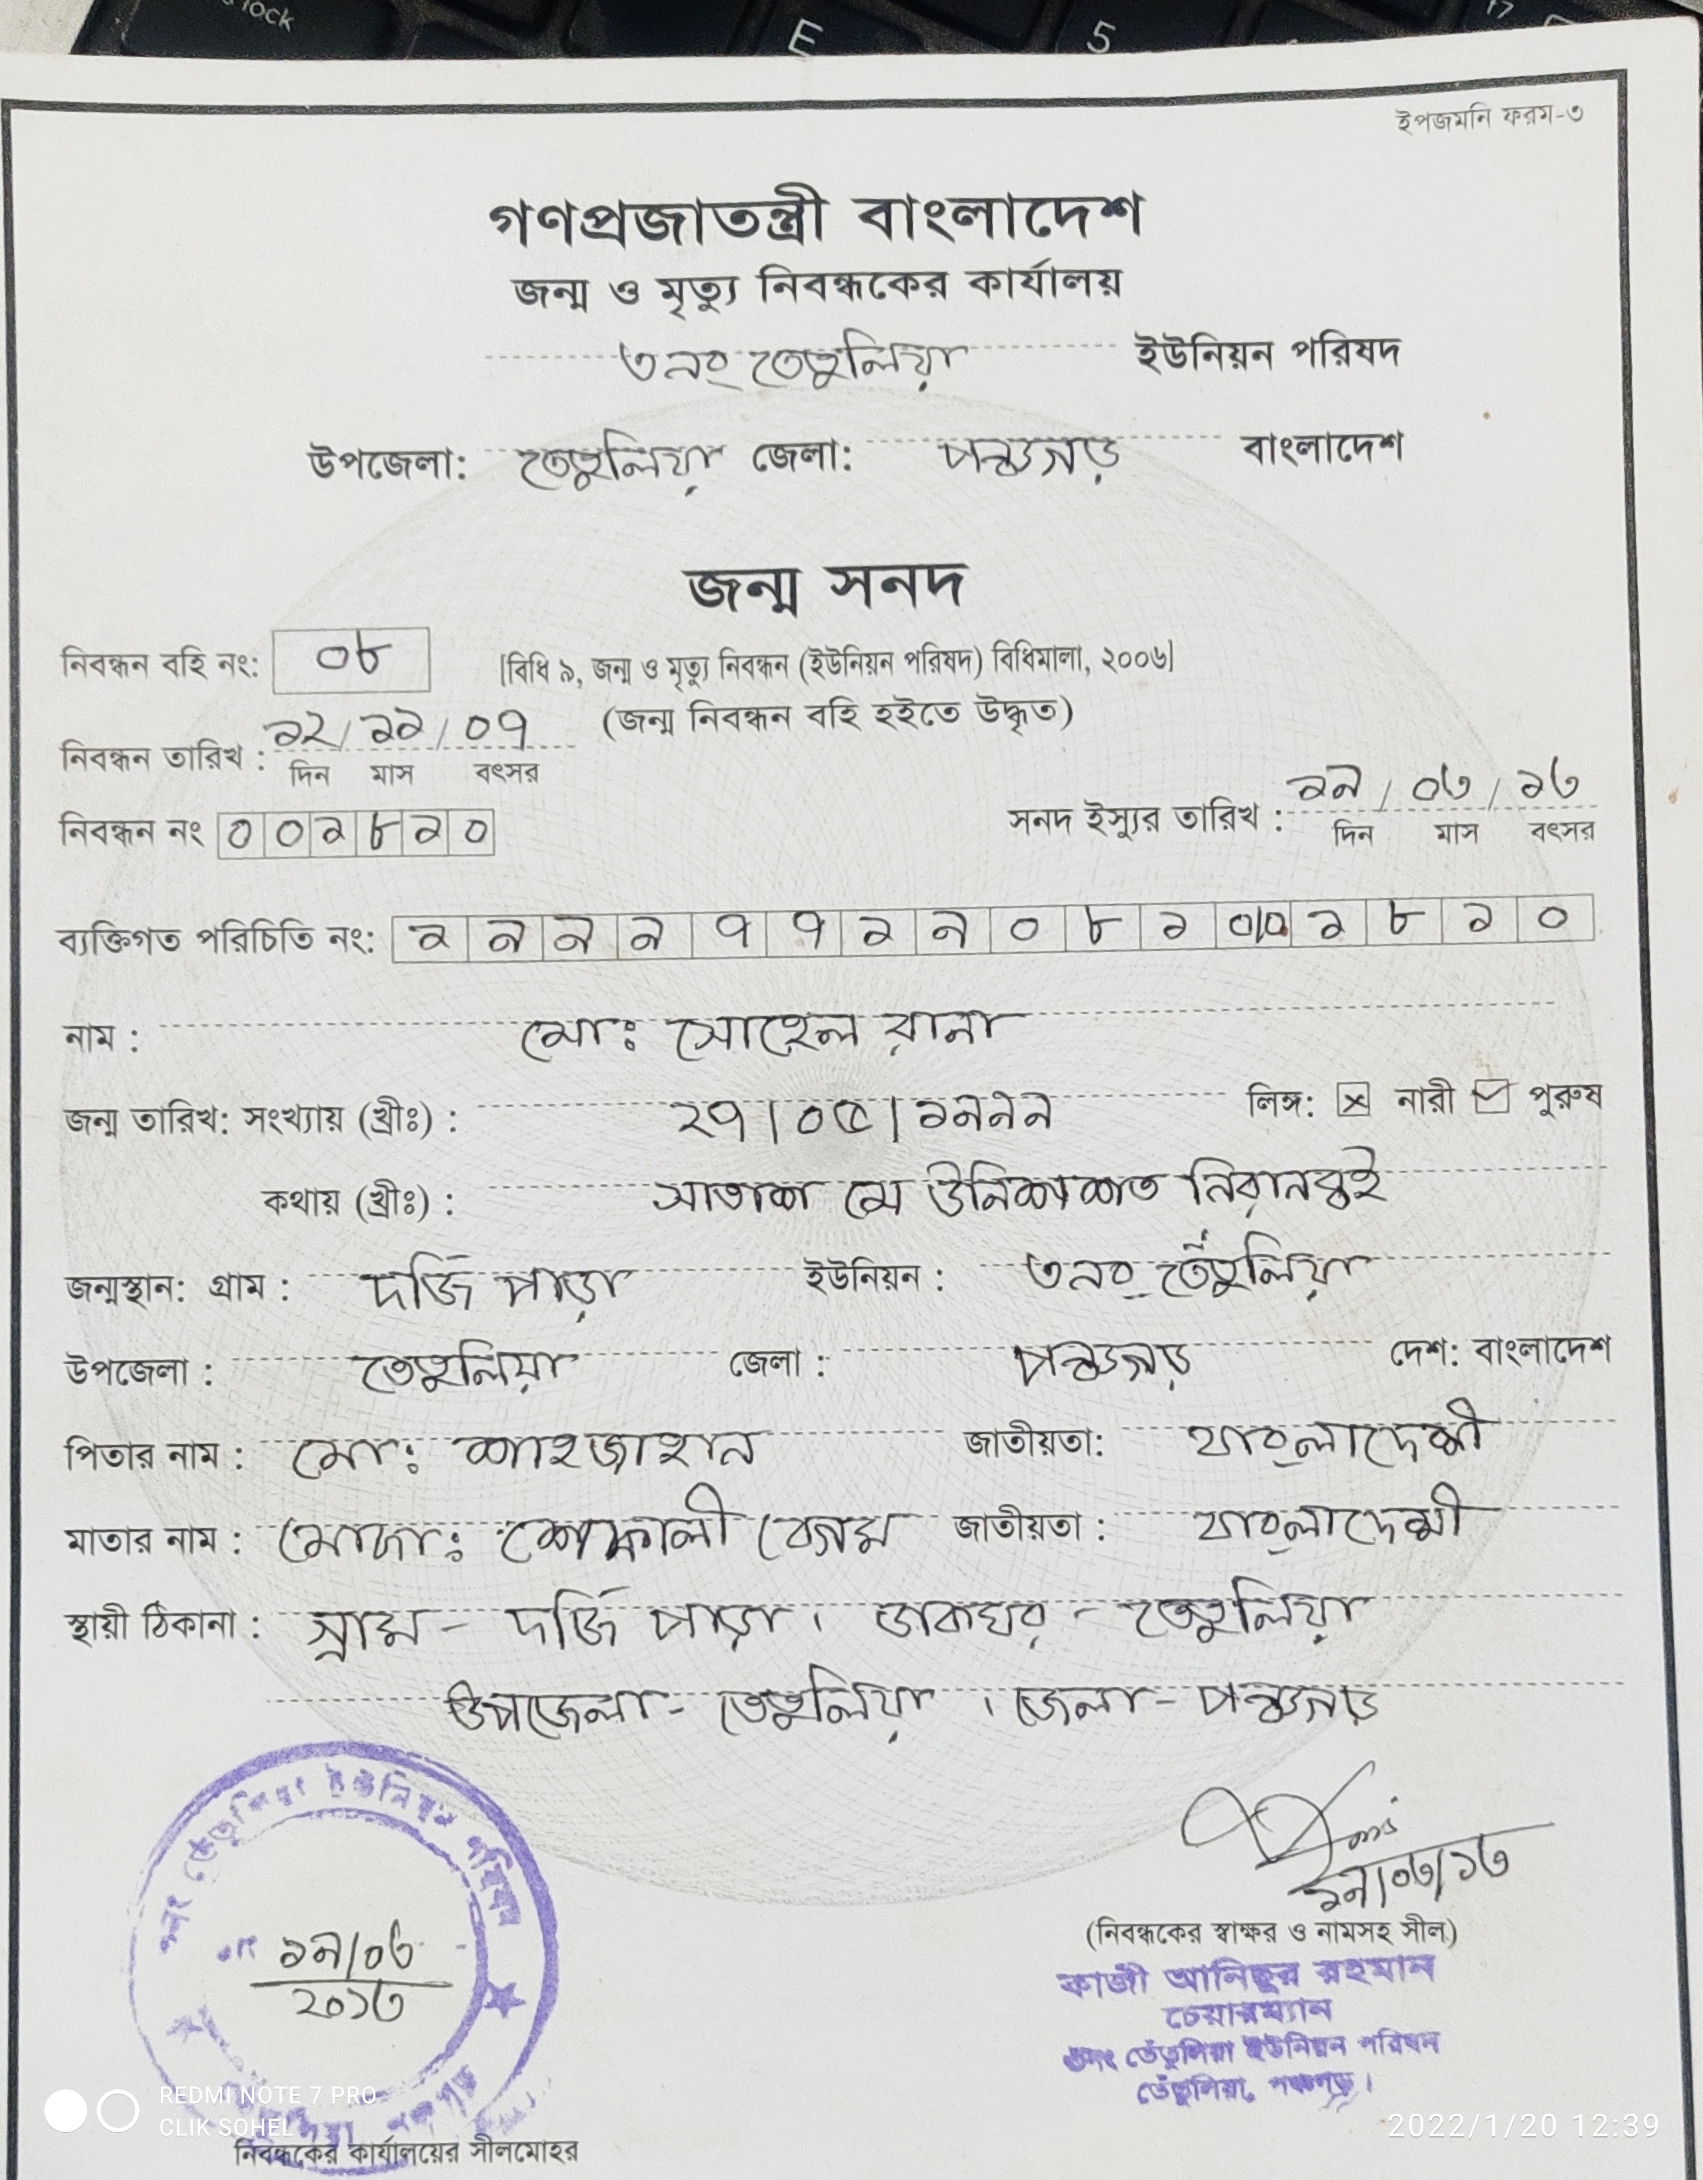 lock E 5
ইপজমনি ফরম-৩
গণপ্রজাতন্ত্রী বাংলাদেশ
জন্ম ও মৃত্যু নিবন্ধকের কার্যালয়
৩নং তেতুলিয়া ইউনিয়ন পরিষদ
উপজেলা: তেতুলিয়া জেলা: পঞ্চগড় বাংলাদেশ
জন্ম সনদ
নিবন্ধন বহি নং: ০৮ [বিধি ৯, জন্ম ও মৃত্যু নিবন্ধন (ইউনিয়ন পরিষদ) বিধিমালা, ২০০৬]
(জন্ম নিবন্ধন বহি হইতে উদ্ধৃত)
নিবন্ধন তারিখ : ১২/১১/০৭
দিন মাস বৎসর
সনদ ইস্যুর তারিখ : ১৯/০৩/১৩
দিন মাস বৎসর
নিবন্ধন নং ০০১৮১০
ব্যক্তিগত পরিচিতি নং: ১৯৯৯৭৭১৯০৮১০০১৮১০
নাম : মোঃ সোহেল রানা
জন্ম তারিখ: সংখ্যায় (খ্রীঃ) : ২৭/০৫/১৯৯৯ লিঙ্গ: নারী পুরুষ
কথায় (খ্রীঃ) : সাতাশ মে উনিশশত নিরানব্বই
জন্মস্থান: গ্রাম : দর্জি পাড়া ইউনিয়ন : ৩নং তেঁতুলিয়া
উপজেলা : তেতুলিয়া জেলা : পঞ্চগড় দেশ: বাংলাদেশ
পিতার নাম : মোঃ শাহজাহান জাতীয়তা: বাংলাদেশী
মাতার নাম : মোছাঃ শেফালী বেগম জাতীয়তা : বাংলাদেশী
স্থায়ী ঠিকানা : গ্রাম - দর্জি পাড়া। ডাকঘর - তেতুলিয়া
উপজেলা - তেতুলিয়া। জেলা - পঞ্চগড়
৩নং তেঁতুলিয়া ইউনিয়ন পরিষদ
১৯/০৩
২০১৩
১৯/০৩/১৩
(নিবন্ধকের স্বাক্ষর ও নামসহ সীল)
কাজী আনিছুর রহমান
চেয়ারম্যান
৩নং তেঁতুলিয়া ইউনিয়ন পরিষদ
তেঁতুলিয়া, পঞ্চগড়।
নিবন্ধকের কার্যালয়ের সীলমোহর
REDMI NOTE 7 PRO
CLIK SOHEL
2022/1/20 12:39